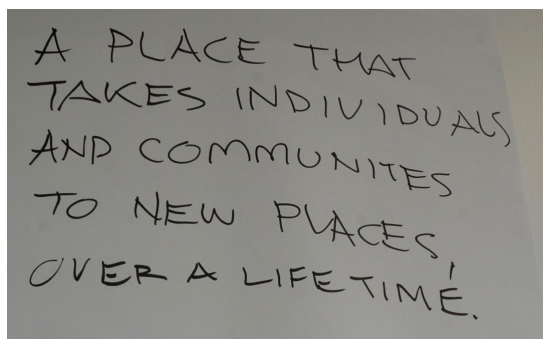 A PLACE THAT
TAKES INDIVIDUALS
AND COMMUNITES
TO NEW PLACES,
OVER A LIFETIME.